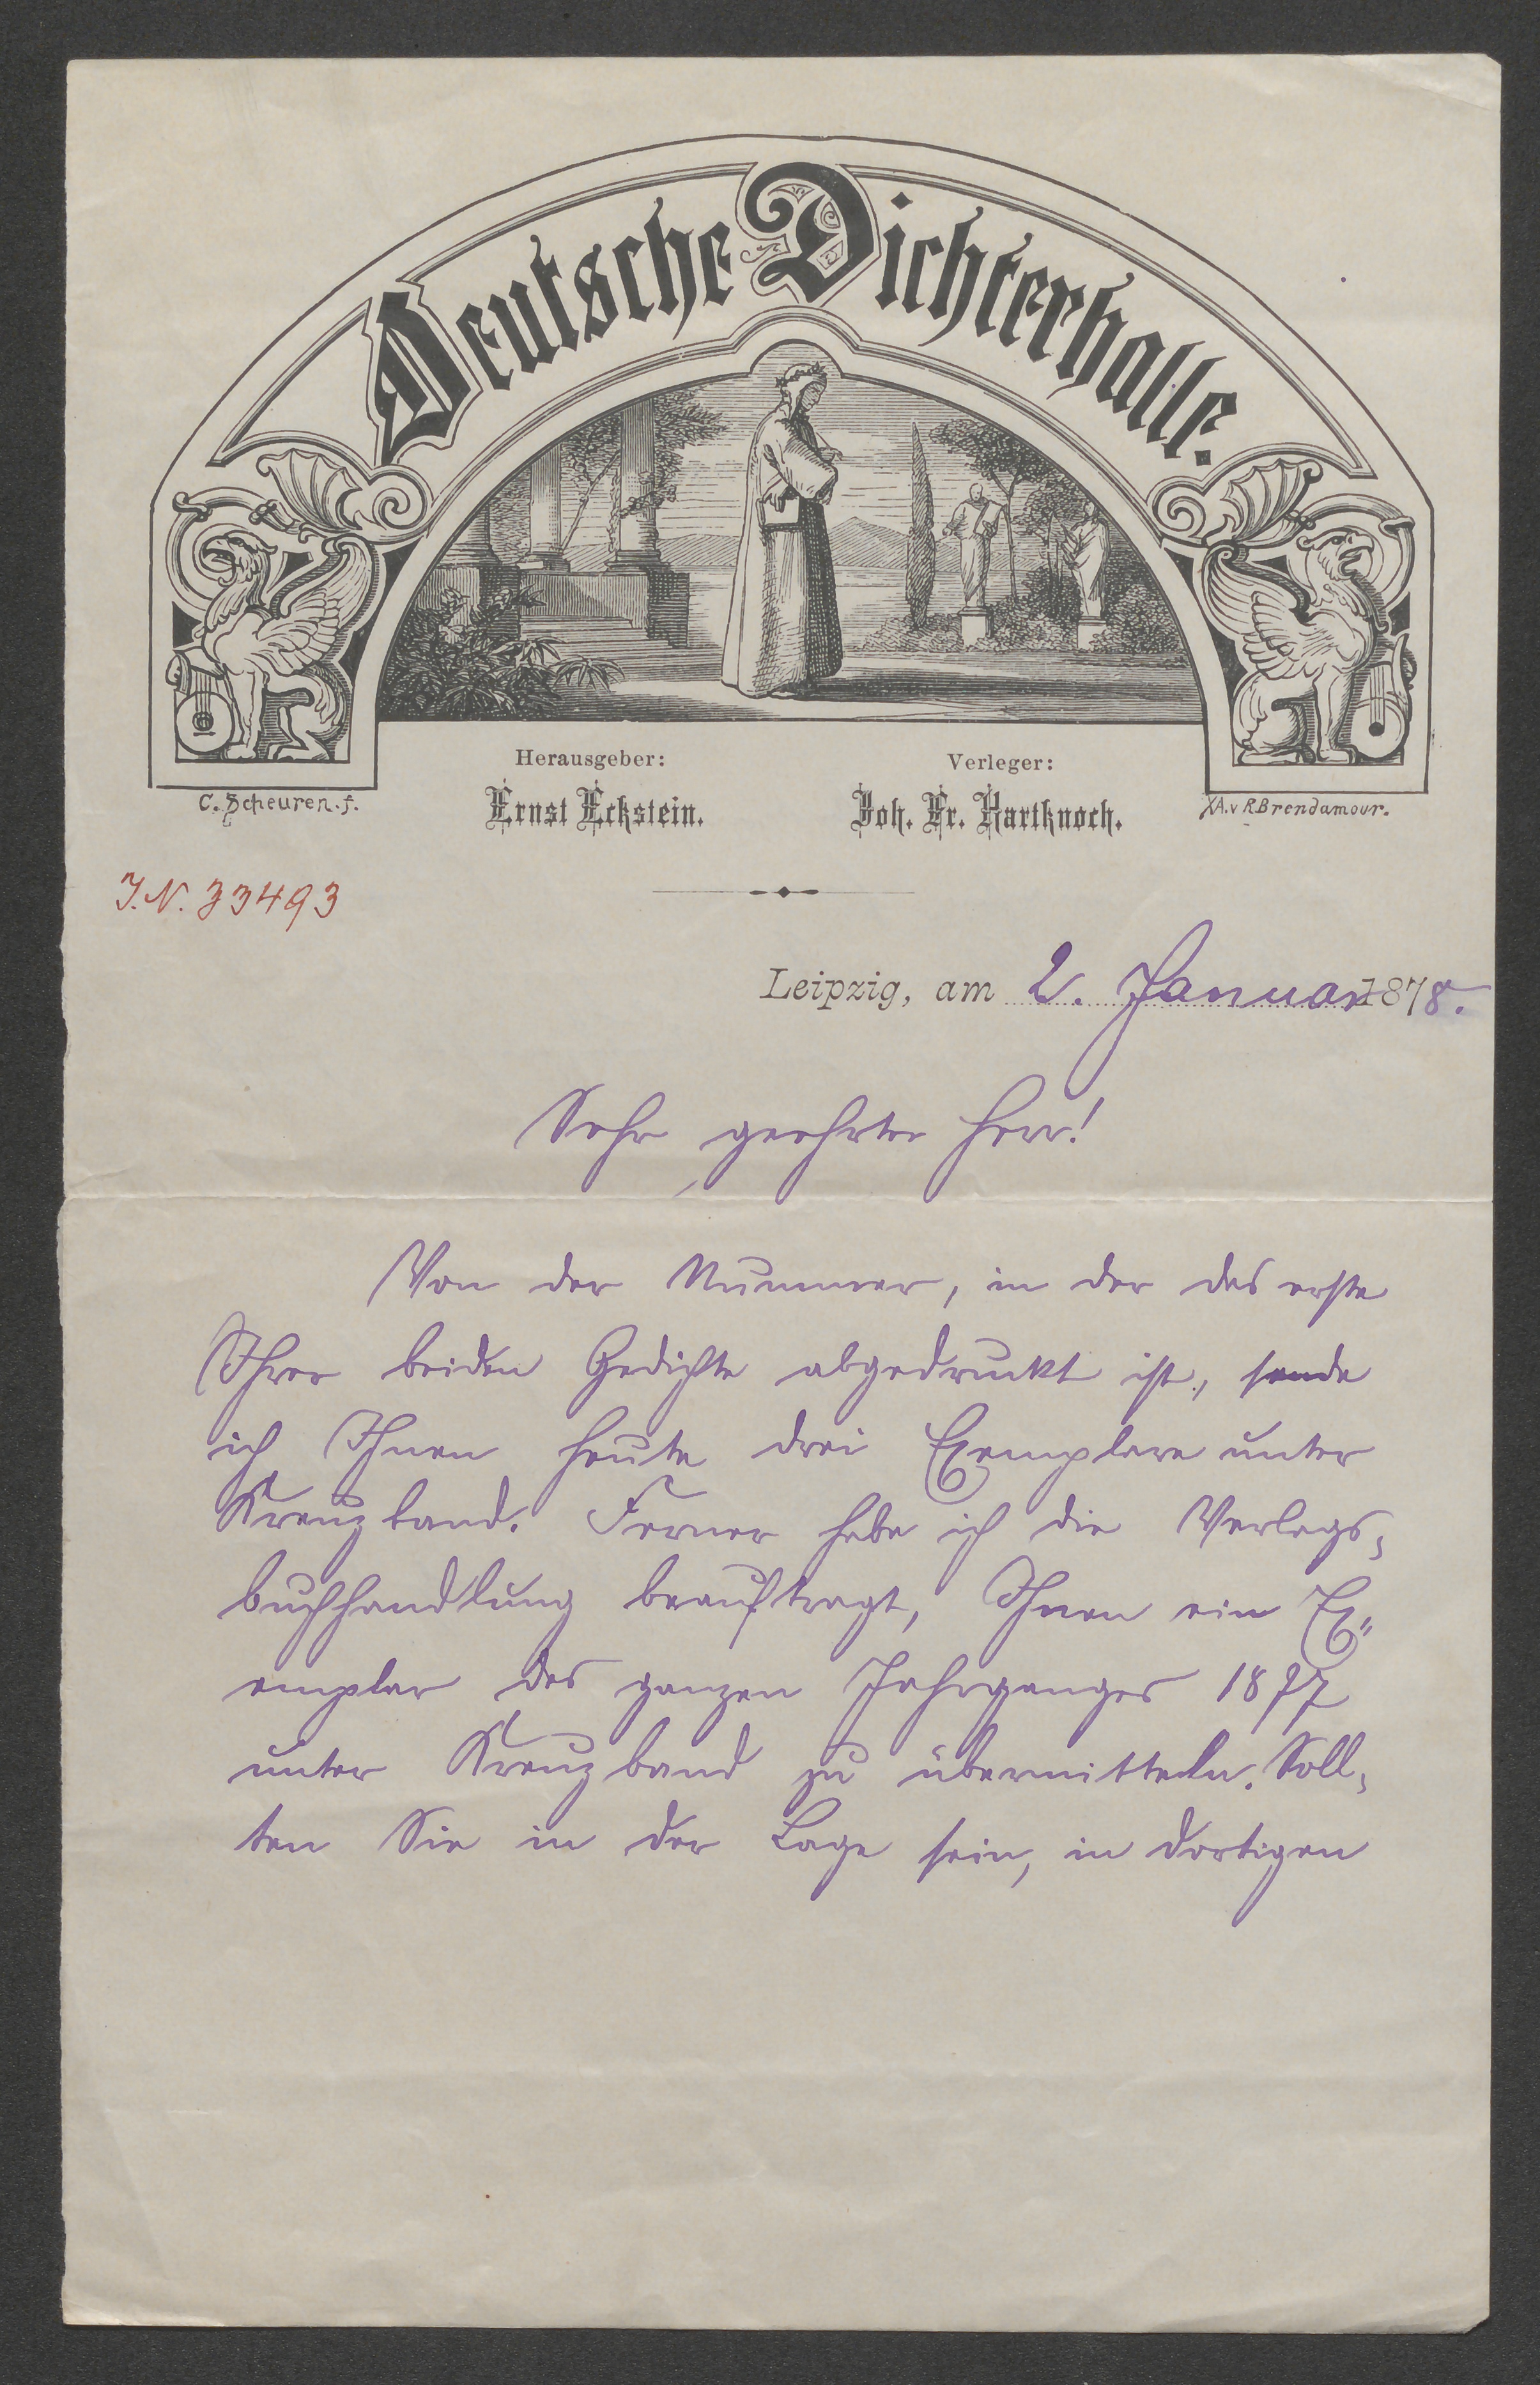 Deutsche Dichterhalle.
Herausgeber:
Ernst Eckstein.
Verleger:
Joh. Fr. Hartknoch.
C. Scheuren. f.
XA. v R. Brendamour.
J.N. 33493
Leipzig, am 2. Januar 1878.
Sehr geehrter Herr!
Von der Nummer, in der das erste
Ihrer beiden Gedichte abgedruckt ist, sende
ich Ihnen heute drei Exemplare unter
Kreuzband. Ferner habe ich die Verlags-
buchhandlung beauftragt, Ihnen ein Ex-
emplar des ganzen Jahrganges 1877
unter Kreuzband zu übermitteln. Soll-
ten Sie in der Lage sein, in dortigen